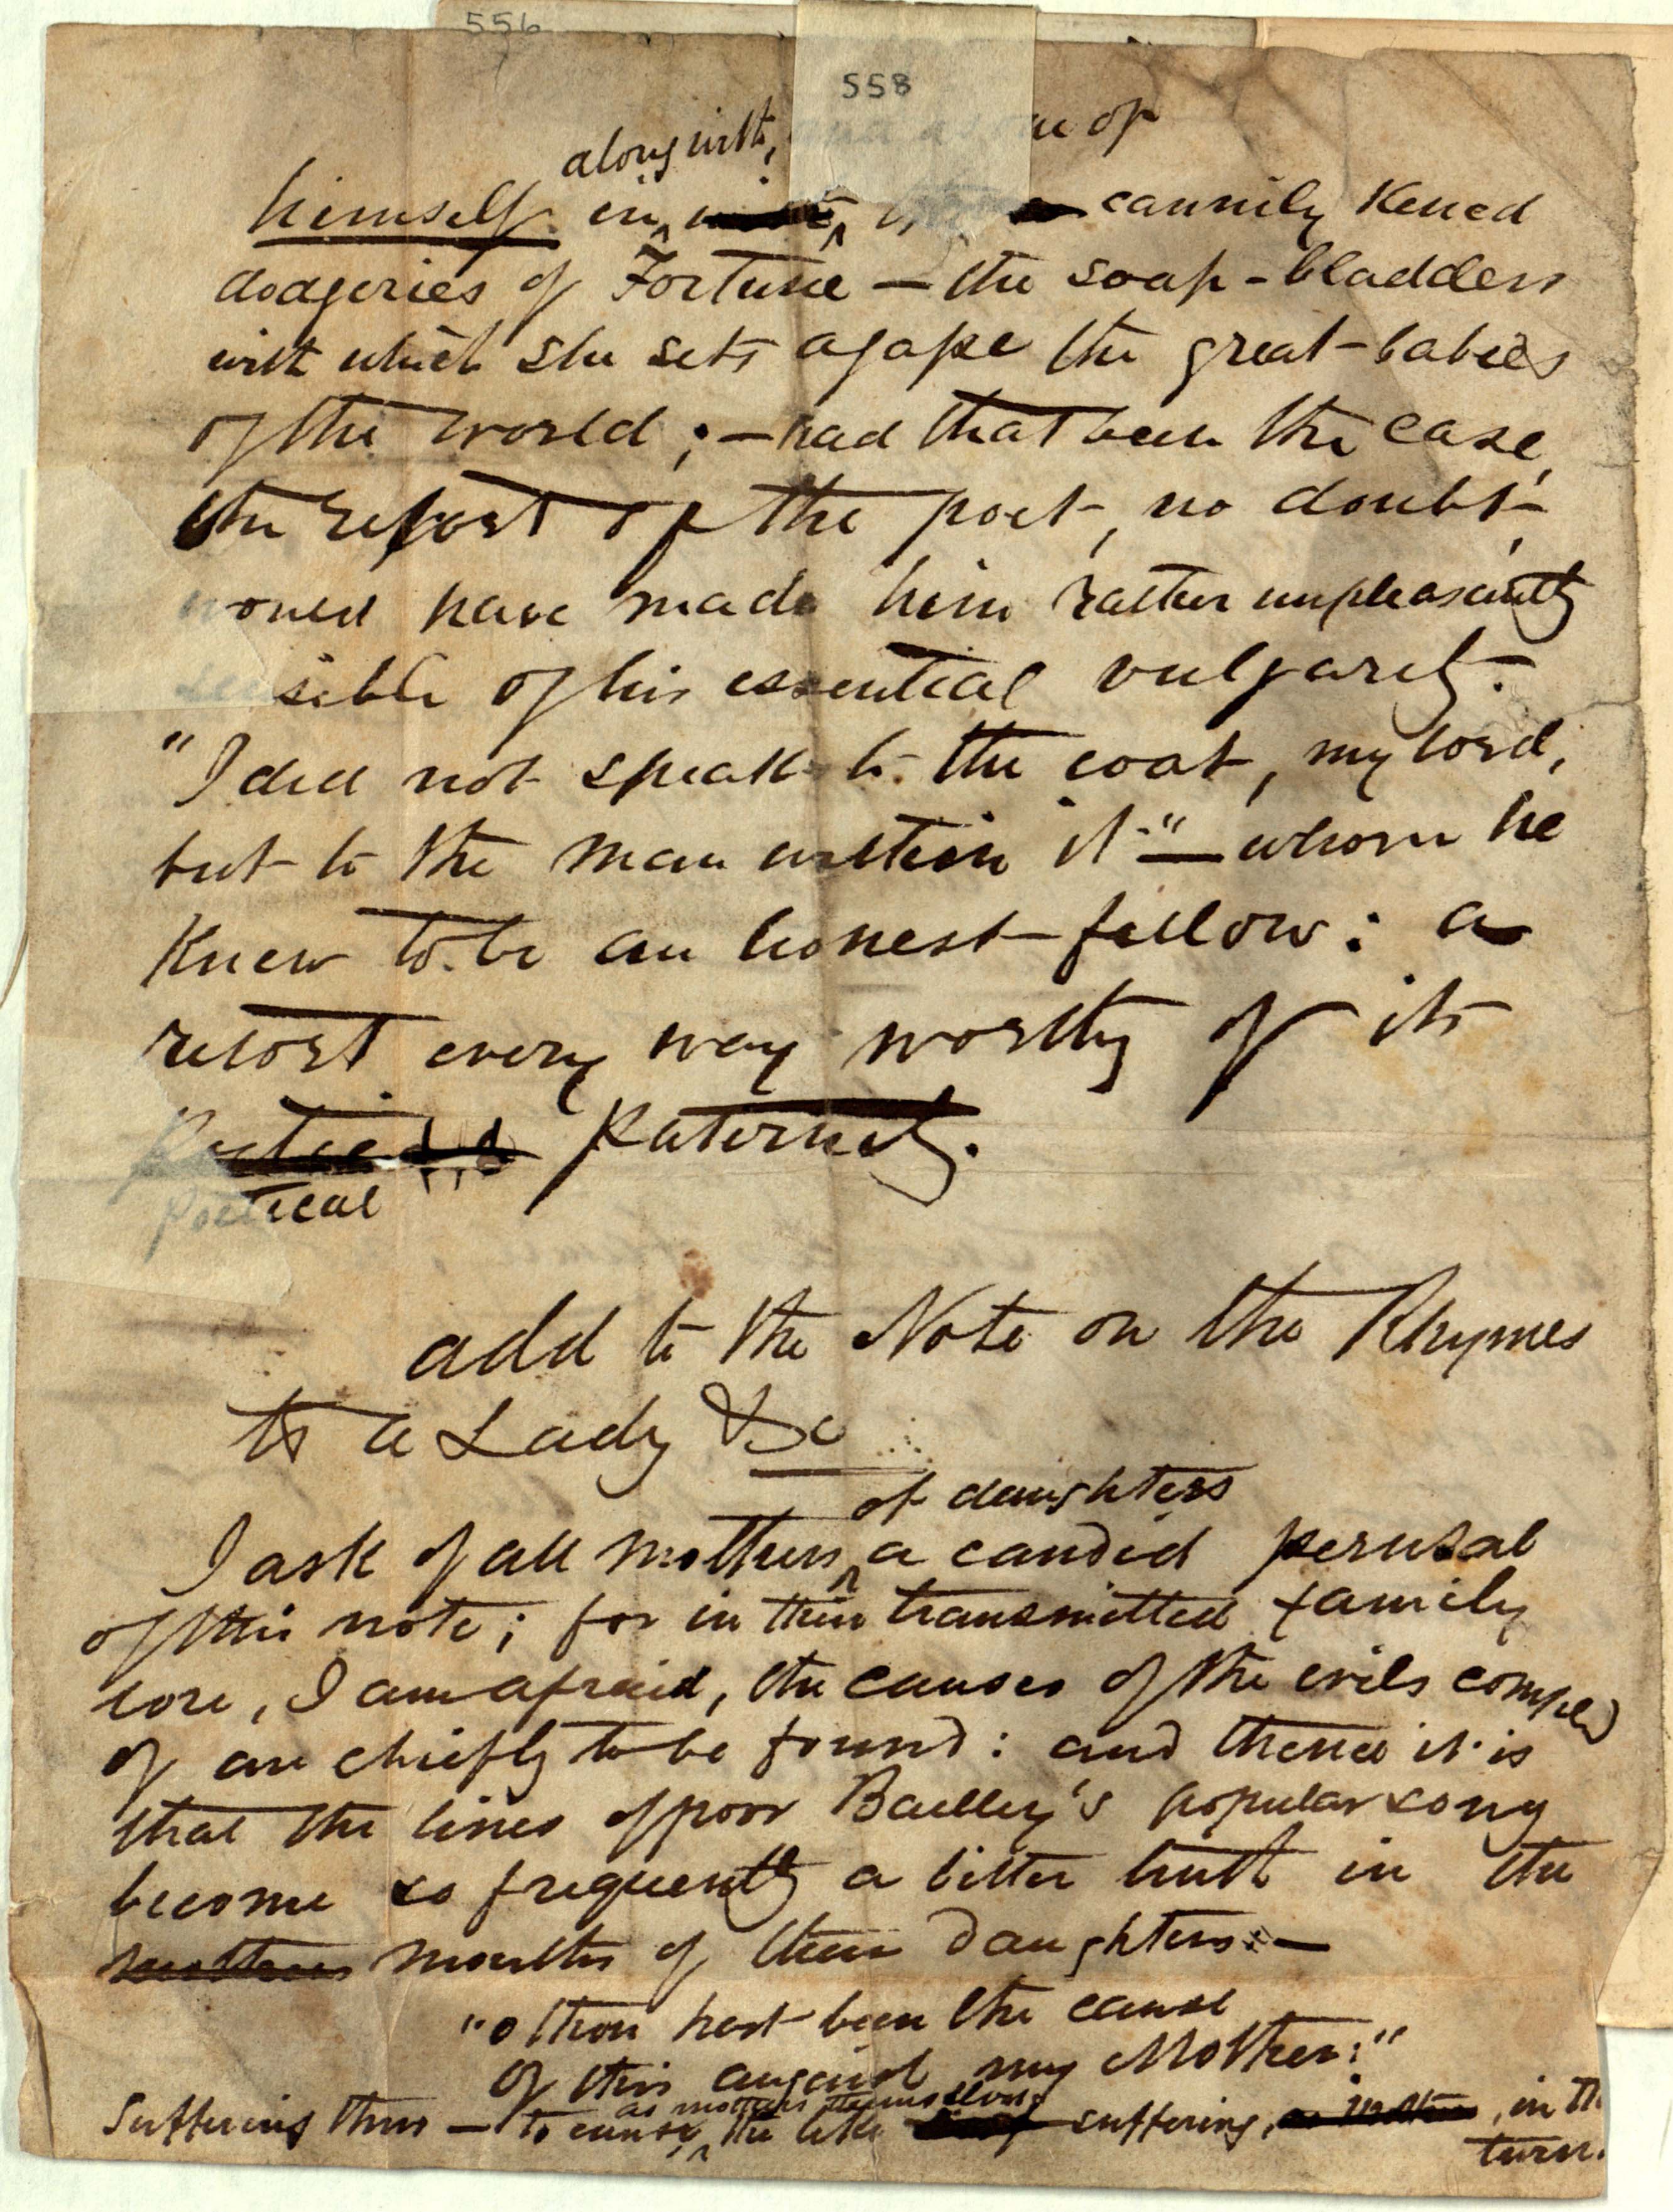 556
558
along with,
of
himself in cannily Kened
dodgeries of Fortune — the soap-bladders
with which she sets agape the great-babies
of the world ; — had that been the case,
the retort of the poet, no doubt,
would have made him rather unpleasantly
sensible of his essential vulgarity.
"I did not speak to the coat, my lord,
but to the man within it" — whom he
Knew to be an honest fellow : a
retort every way worthy of its
paternity.
Poetical
add to the Note on the Rhymes
to a Lady &c
of daughters
I ask of all mothers a candid perusal
of this note ; for in their transmitted family
lore, I am afraid, the causes of the evils complnd
of are chiefly to be found : and thence it is
that the lines of poor Bailley's popular song
become so frequently a bitter truth in the
mothers mouths of their daughters : —
"O thou hast been the cause
Of this anguish my Mother."
as mothers themselves
Suffering thus — to cause the like suffering, as mothers, in th
turn.